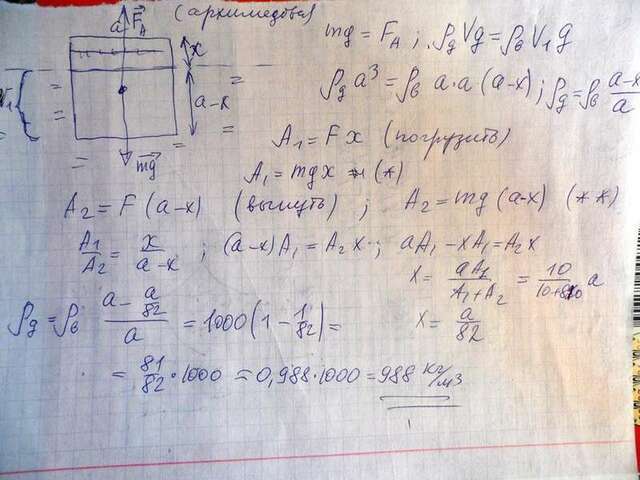 (архимедова)
a F_A x
V₁ a-x
mg
mg = F_A ; ρ_д Vg = ρ_в V₁ g
ρ_д a³ = ρ_в a·a (a-x) ; ρ_д = ρ_в (a-x)/a
A₁ = F x (погрузить)
A₁ = mgx (*)
A₂ = F (a-x) (вынуть) ; A₂ = mg (a-x) (**)
A₁/A₂ = x/(a-x) ; (a-x)A₁ = A₂ x ; aA₁ - xA₁ = A₂x
x = aA₁/(A₁+A₂) = 10/(10+810) a
x = a/82
ρ_д = ρ_в (a - a/82)/a = 1000(1 - 1/82) =
= 81/82 · 1000 = 0,988·1000 = 988 кг/м3